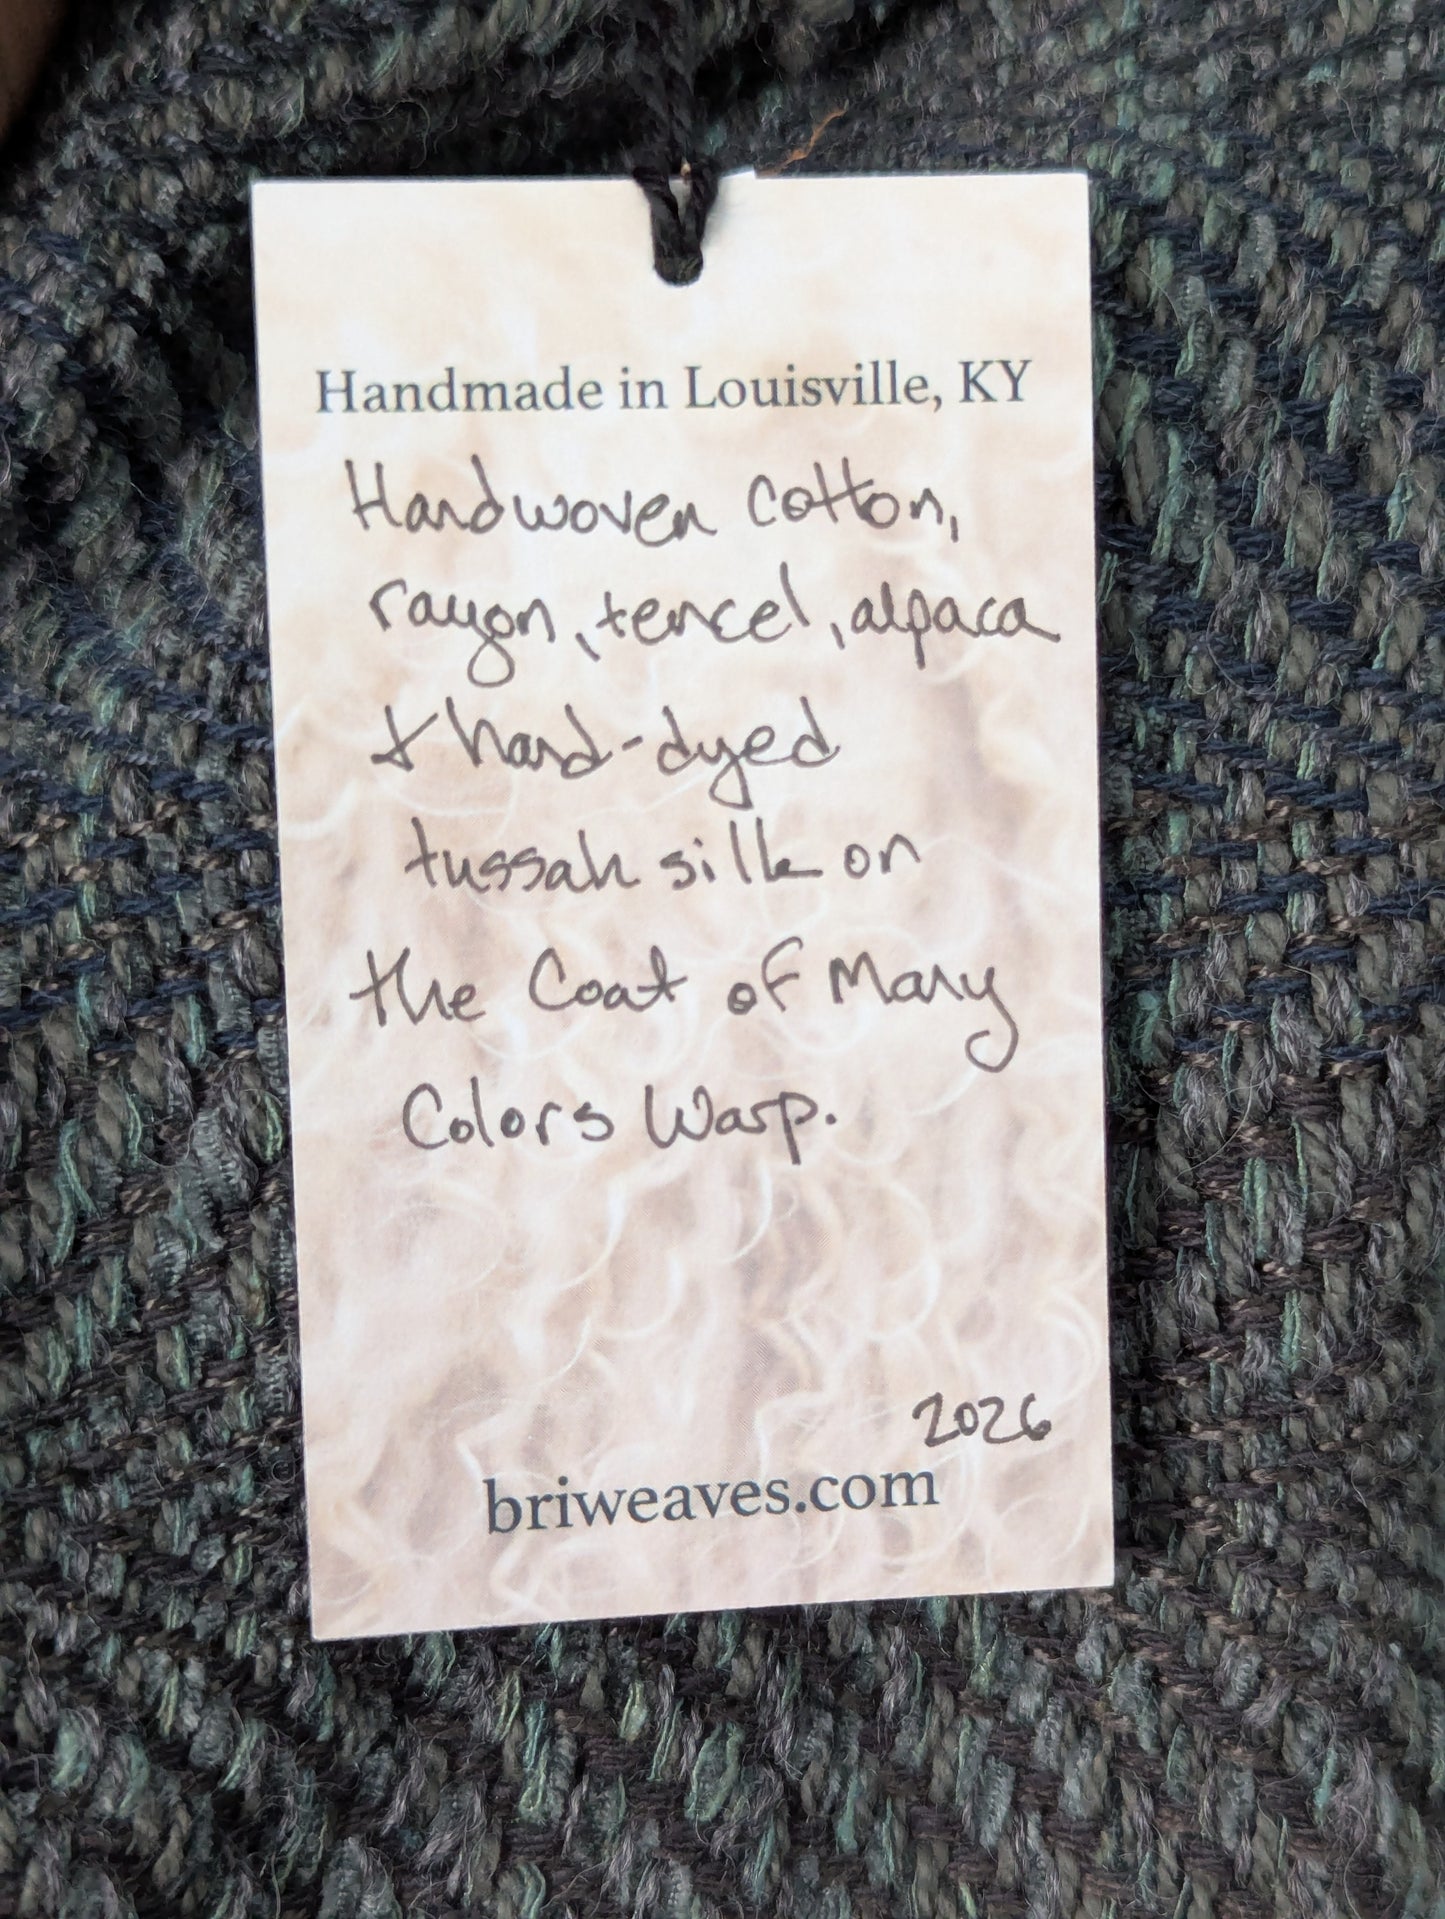 Handmade in Louisville, KY
Handwoven cotton,
rayon, tencel, alpaca
& hand-dyed
tussah silk on
the Coat of Many
Colors Warp.
2026
briweaves.com